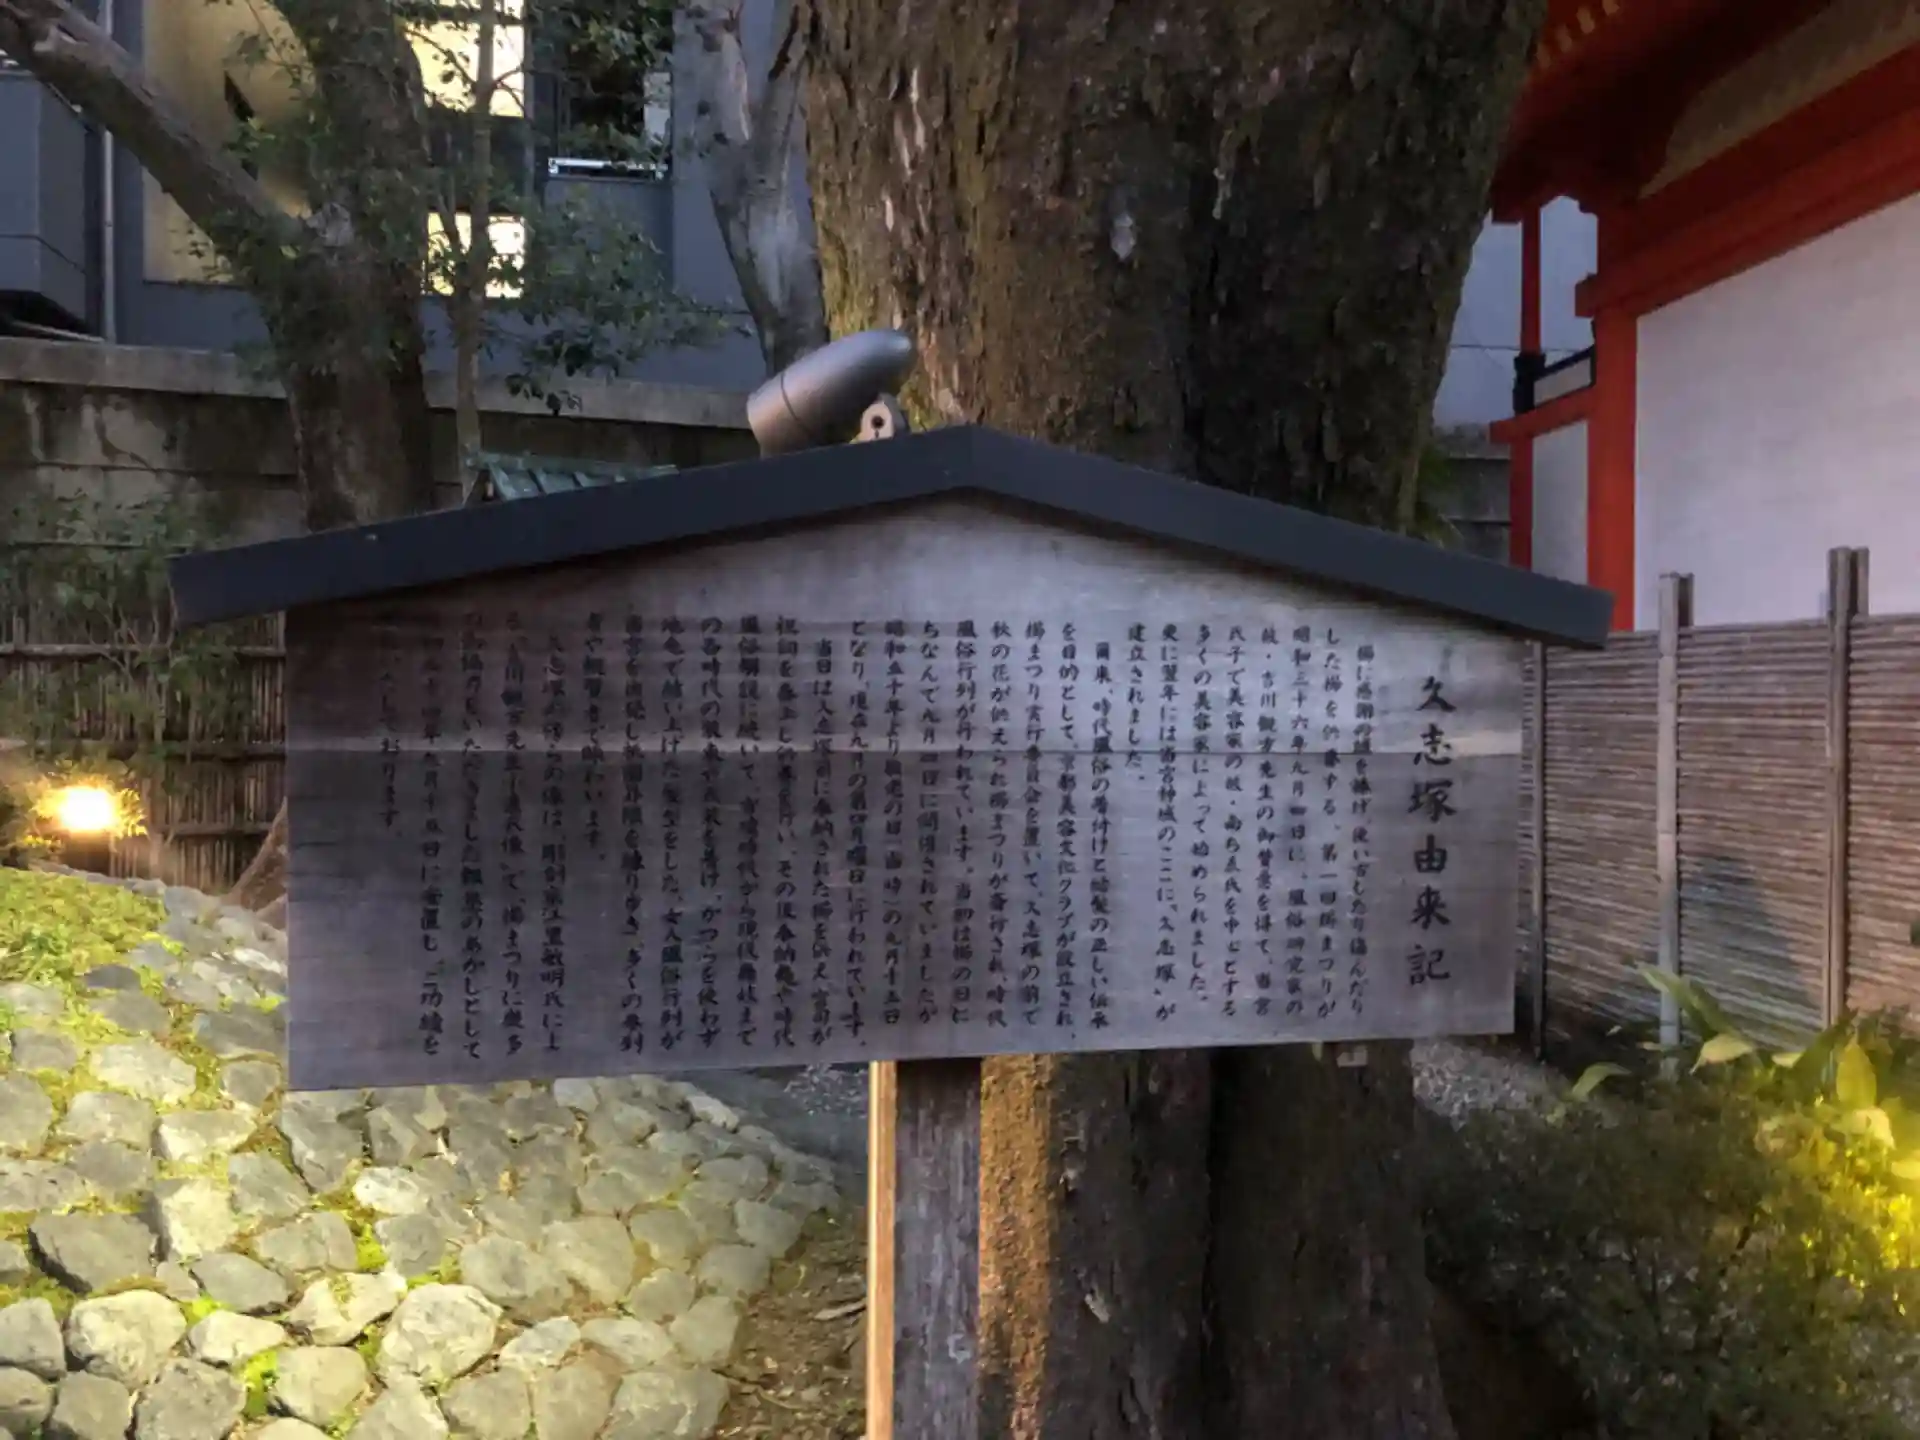 久志塚由来記
櫛に感謝の誠を捧げ、使い古したり傷んだり
した櫛を供養する、第一回櫛まつりが
昭和三十六年九月四日に、風俗研究家の
故・吉川観方先生の御賛意を得て、当宮
氏子で美容家の故・南ちゑ氏を中心とする
多くの美容家によって始められました。
更に翌年には当宮神域のここに、久志塚"が
建立されました。
爾来、時代風俗の着付けと結髪の正しい伝承
を目的として、京都美容文化クラブが設立され、
櫛まつり実行委員会を置いて、久志塚の前で
秋の花が供えられ櫛まつりが斎行され、時代
風俗行列が行われています。当初は櫛の日に
ちなんで九月四日に開催されていましたが
昭和五十年より敬老の日（当時）の九月十五日
となり、現在九月の第四月曜日に行われています。
当日は久志塚前に奉納された櫛を供え、宮司が
祝詞を奏上し供養を行い、その後奉納舞や時代
風俗解説に続いて、古墳時代から現代舞妓まで
の各時代の装束や衣裳を着け、かつらを使わず
地毛で結い上げた髪型をした、女人風俗行列が
当宮を出発し祇園界隈を練り歩き、多くの参列
者や観覧者で賑わいます。
久志塚の傍らの像は、彫刻家江里敏明氏によ
る 吉川観方先生 像"で、櫛まつりに数多
の御協力をいただきました報恩のあかしとして
十四年九月十五日に安置し、ご功績を
しております。